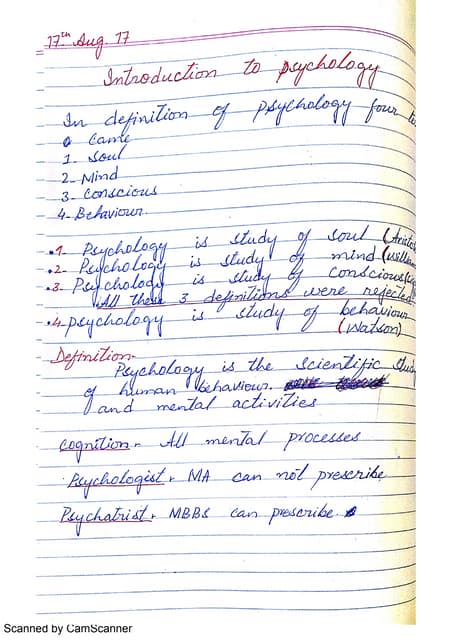 17th Aug. 17
Introduction to psychology
In definition of psychology four
Came
1. Soul
2- Mind
3- Conscious
4- Behaviour
.1. Psychology is study of soul
.2- Psychology is study of mind
.3- Psycholody is study of conscious
All these 3 definitions were rejected
.4- psychology is study of behaviour
(Watson)
Definition-
Psychology is the Scientific
of human behaviour.
and mental activities
Cognition- All mental processes
Psychologist. MA can not prescribe
Psychatrist. MBBS can prescribe.
Scanned by CamScanner